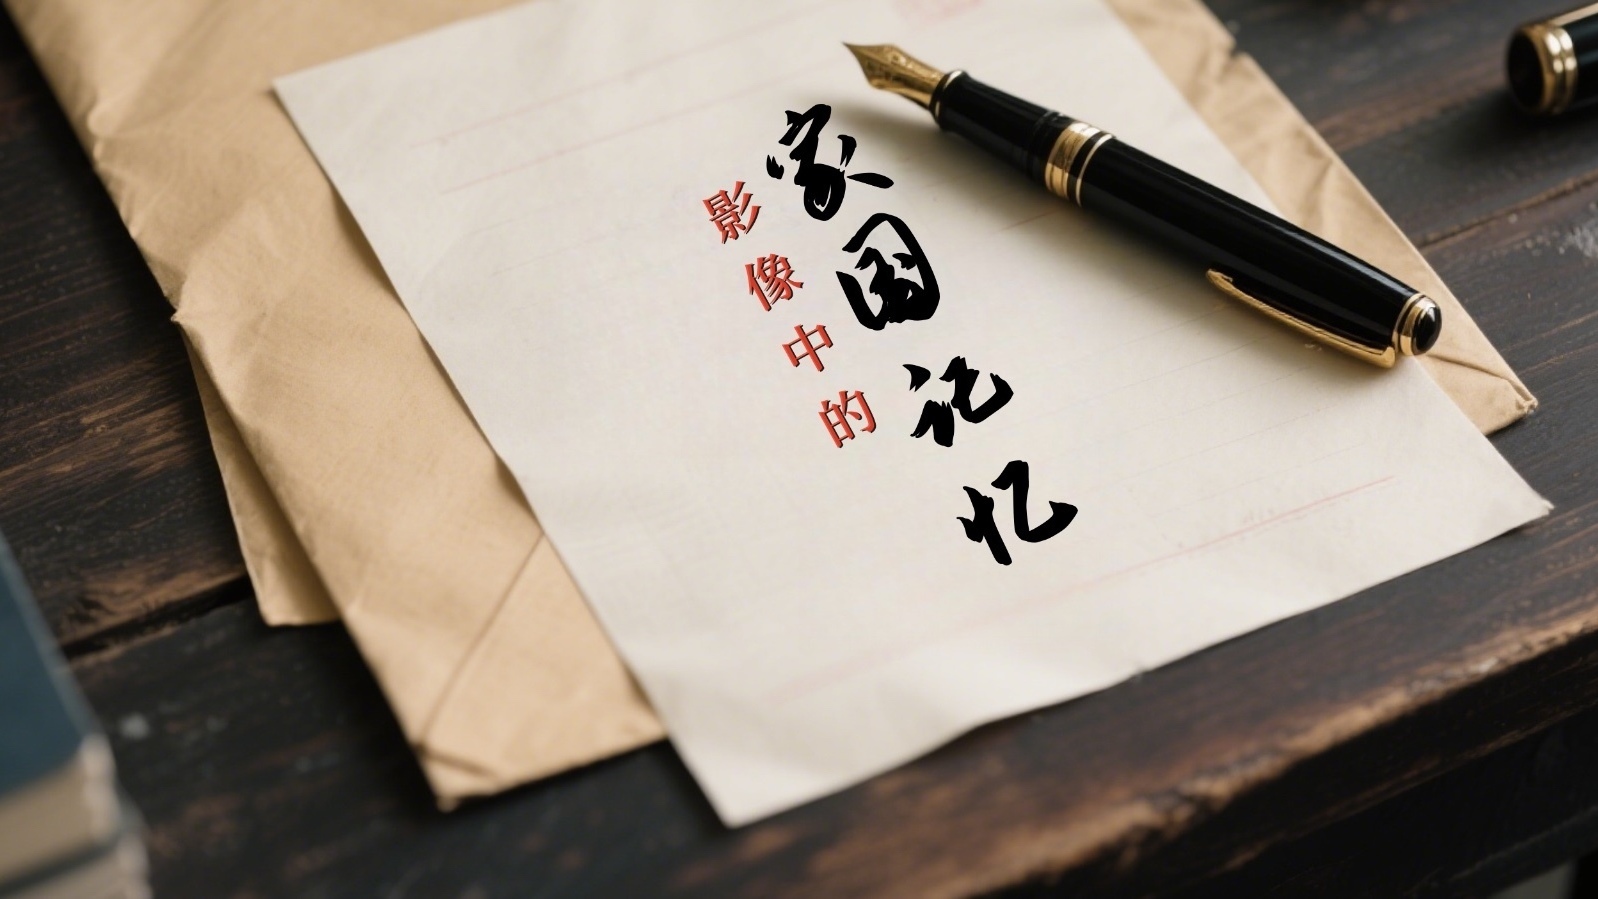 影像中的
家国记忆